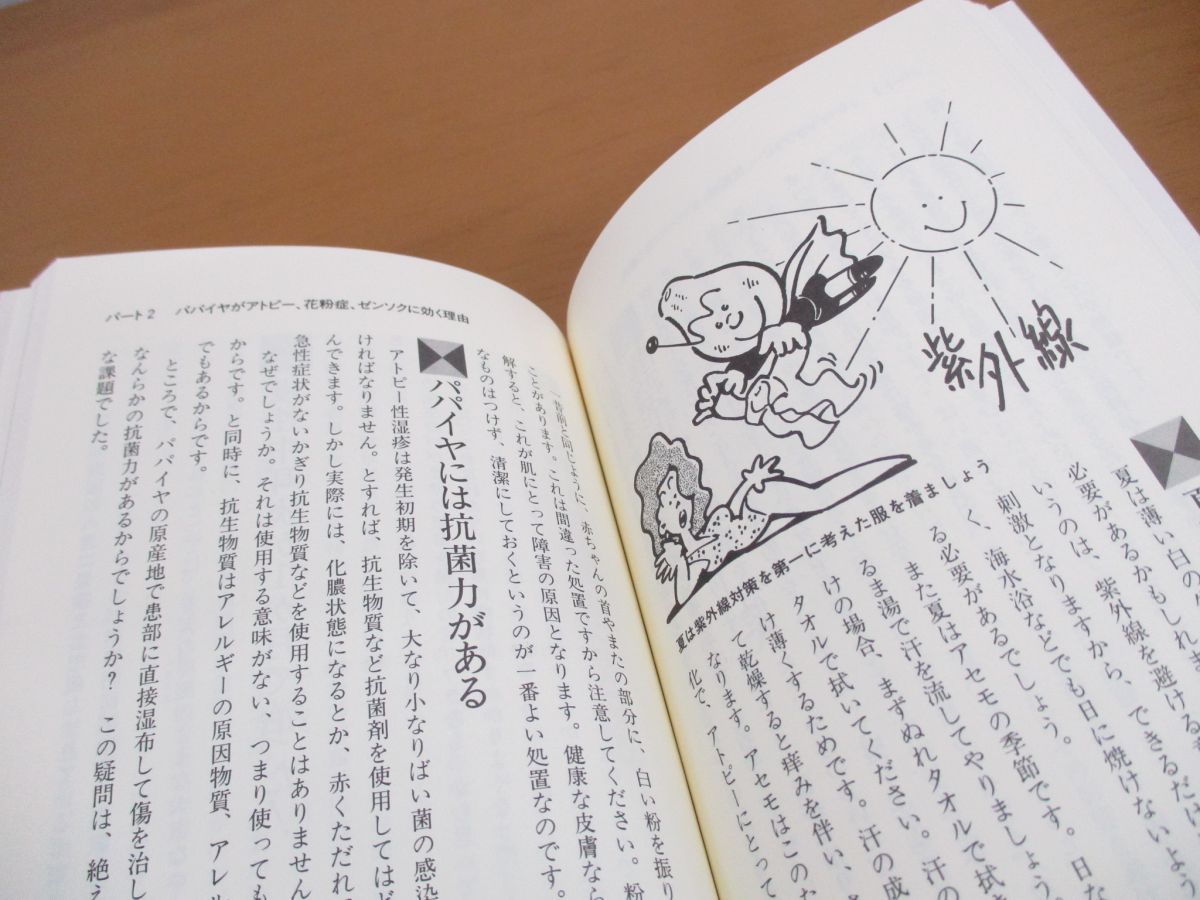 紫外線
夏は紫外線対策を第一に考えた服を着ましょう
夏は薄い白の
必要があるかもしれま
いうのは、紫外線を避けるま
刺激となりますから、できるだけ
く、海水浴などでも日に焼けないよう
る必要があるでしょう。
また夏はアセモの季節です。日な
るま湯で汗を流してやりましょう
けの場合、まずぬれタオルで拭き
タオルで拭いてください。汗の
け薄くするためです。汗の成
て乾燥すると痒みを伴い、
なります。アセモはこのた
化で、アトピーにとって
パート2 パパイヤがアトピー、花粉症、ゼンソクに効く理由
一昔前と同じように、赤ちゃんの首やまたの部分に、白い粉を振り
ことがあります。これは間違った処置ですから注意してください。粉
解すると、これが肌にとって障害の原因となります。健康な皮膚なら
なものはつけず、清潔にしておくというのが一番よい処置なのです。
パパイヤには抗菌力がある
アトピー性湿疹は発生初期を除いて、大なり小なりばい菌の感染
ければなりません。とすれば、抗生物質など抗菌剤を使用してはど
んできます。しかし実際には、化膿状態になるとか、赤くただれ
急性症状がないかぎり抗生物質などを使用することはありません
なぜでしょうか。それは使用する意味がない、つまり使っても
からです。と同時に、抗生物質はアレルギーの原因物質、アレル
でもあるからです。
ところで、パパイヤの原産地で患部に直接湿布して傷を治し
なんらかの抗菌力があるからでしょうか？この疑問は、絶え
な課題でした。